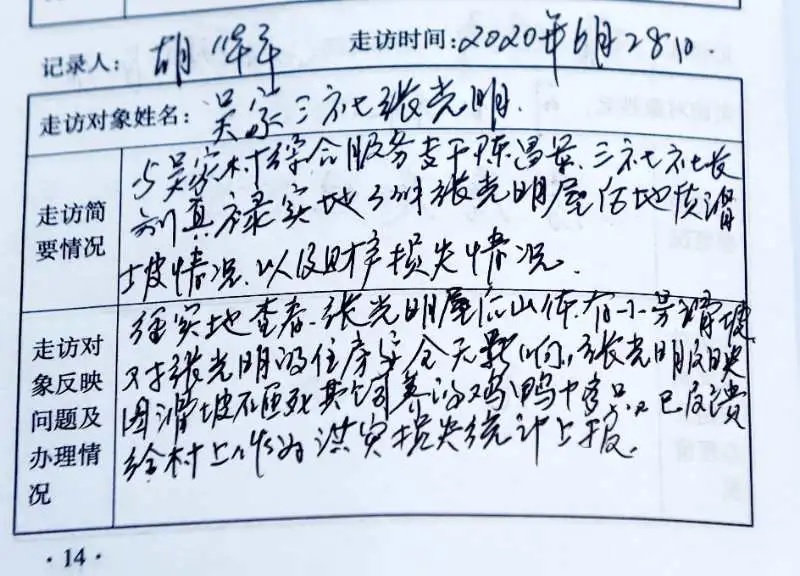 记录人： 胡 走访时间：2020年6月28日.
走访对象姓名： 吴家三社张光明.
走访简要情况
与吴家村综合服务专干陈昌荣、三社社长
刘真禄实地了解张光明屋后地质滑
坡情况、以及财产损失情况.
走访对象反映问题及办理情况
经实地查看、张光明屋后山体有小部分滑坡
对张光明的住房安全无影响，张光明反映
因滑坡石压死其饲养的鸡鸭十多只已反馈
给村上作为洪灾损失统计上报.
·14·